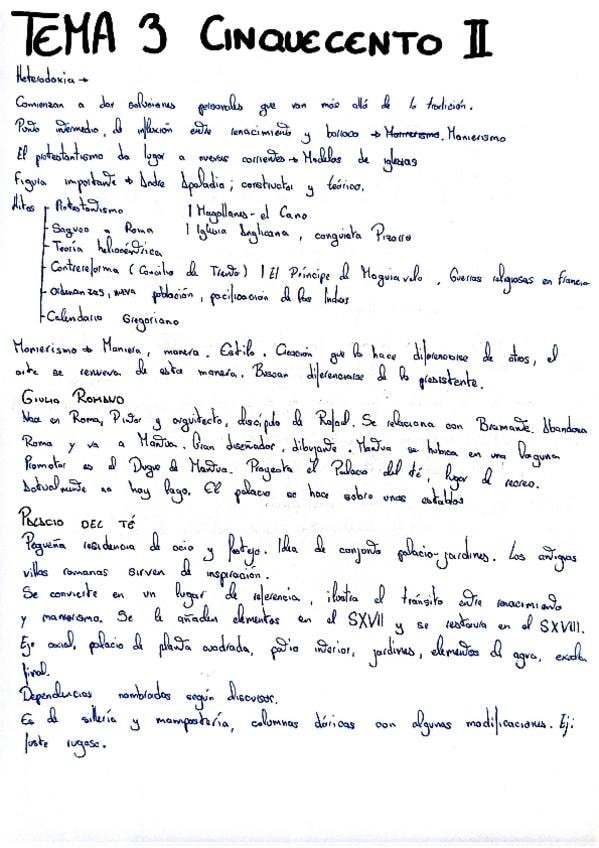 TEMA 3 CINQUECENTO II
Heterodoxia →
Comienzan a dar soluciones personales que van más allá de la tradición.
Punto intermedio, de inflexión entre renacimiento y barroco → Manierismo. Manierismo
El protestantismo da lugar a nuevas corrientes → Modelos de iglesias
Figura importante → Andre Apaladio; constructor y teórico.
Hitos - Protestantismo | Magallanes - el Cano
- Saqueo a Roma | Iglesia Anglicana, conquista Pizarro
- Teoría heliocéntrica
- Contrereforma (Concilio de Trento) | El Príncipe de Maquiavelo, Guerras religiosas en Francia
- ordenanzas, nueva población, pacificación de las Indias
- Calendario Gregoriano
Manierismo → Maniera, manera. Estilo. Creación que lo hace diferenciarse de otros, el
arte se renueva de esta manera. Buscan diferenciarse de lo preexistente.
GIULIO ROMANO
Nace en Roma, Pintor y arquitecto, discípulo de Rafael. Se relaciona con Bramante. Abandona
Roma y va a Mantua. Gran diseñador, dibujante. Mantua se hubica en una laguna
Promotor es el Duque de Mantua. Proyecta el Palacio del té, lugar de recreo.
Actualmente no hay lago. El palacio se hace sobre unos establos
PALACIO DEL TÉ
Pequeña residencia de ocio y festejo. Idea de conjunto palacio-jardines. Las antiguas
villas romanas sirven de inspiración.
Se convierte en un lugar de referencia, ilustra el tránsito entre renacimiento
y manierismo. Se le añaden elementos en el SXVII y se restaura en el SXVIII.
Eje axial, palacio de planta cuadrada, patio interior, jardines, elementos de agua, exedra
final.
Dependencias nombradas según discurso.
Es de sillería y mampostería, columnas dóricas con algunas modificaciones. Ej:
fuste rugoso.